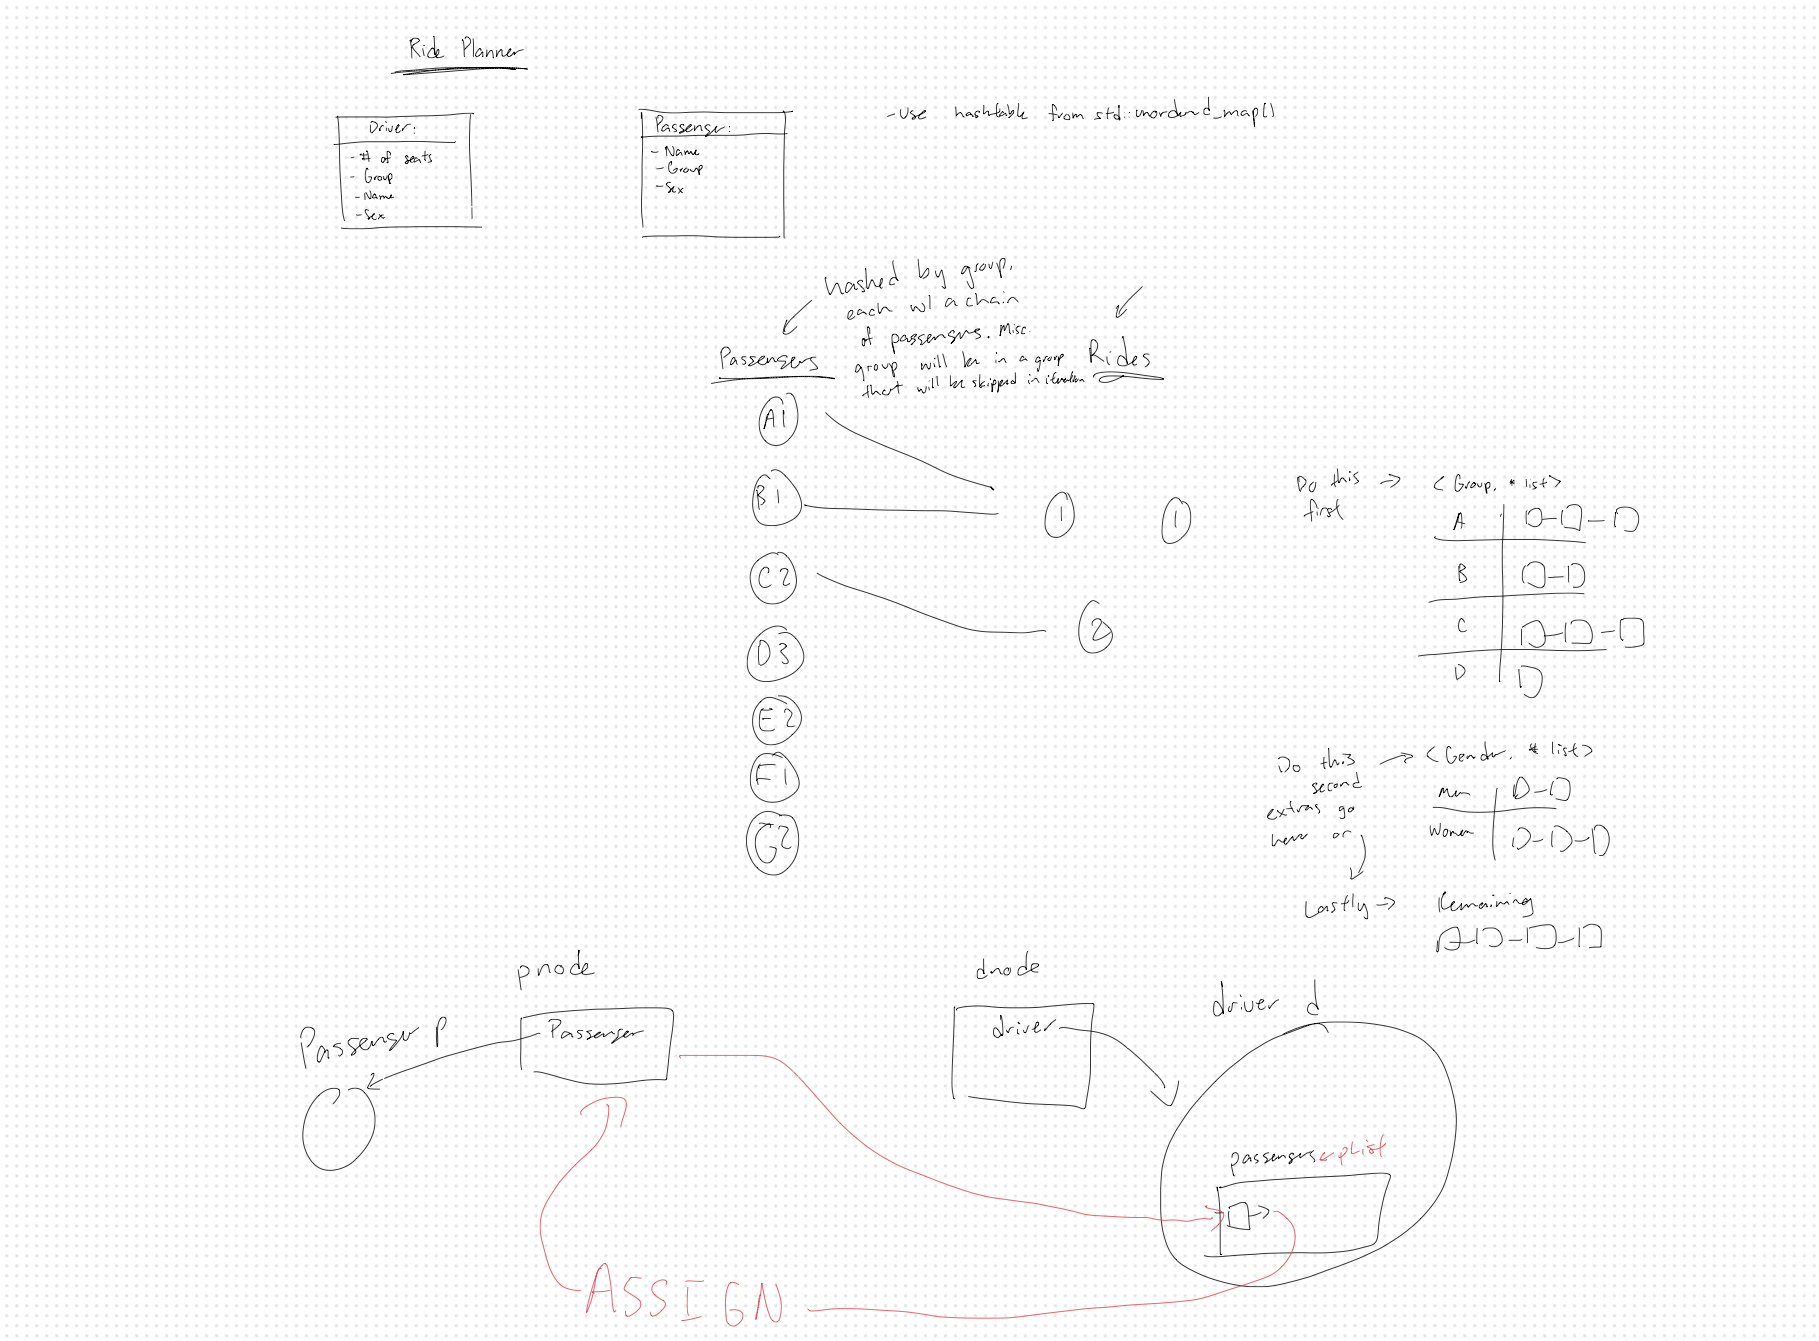 Ride Planner
Driver:
- # of seats
- Group
- Name
- Sex
Passenger:
- Name
- Group
- Sex
- use hashtable from std::unordered_map()
hashed by group,
each w/ a chain
of passengers. Misc.
group will be in a group
that will be skipped in iteration
Passengers
A1
B1
C2
D3
E2
F1
G2
Rides
1
1
2
Do this →
first
< Group, * list>
A
B
C
D
Do this →
second
extras go
here or
< Gender, * list>
Men
Women
Lastly →
Remaining
pnode
Passenger
Passenger p
dnode
driver
driver d
passengers ← pList
ASSIGN